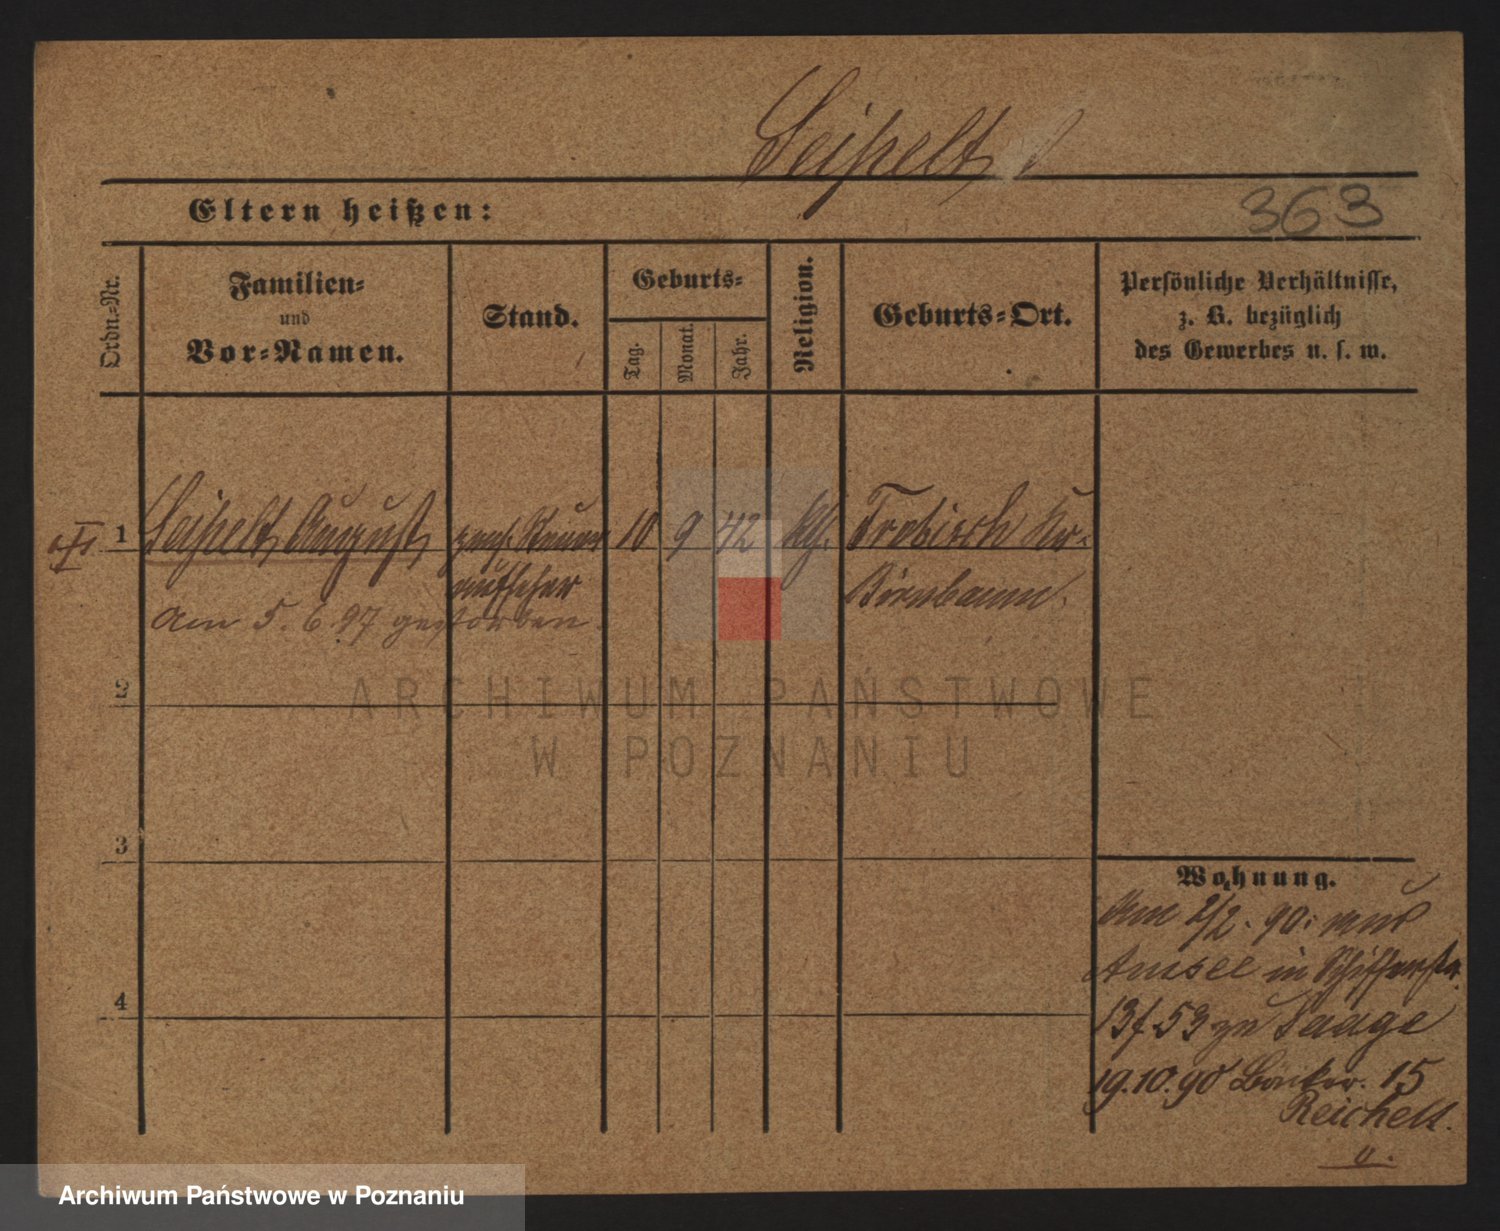 Seipelt
Eltern heißen:
363
Ordn.-Nr.
Familien-
und
Vor-Namen.
Stand.
Geburts-
Tag.
Monat.
Jahr.
Religion.
Geburts-Ort.
Persönliche Verhältnisse,
z. B. bezüglich
des Gewerbes u. s. w.
1 Seipelt, August, Steuer 10 9 42 Kr.
aufseher Birnbaum.
Am 5. 6. 97 gestorben.
2
3
4
Wohnung.
Am 2/2. 90. aus
Amsee in Schifferstr.
13 f. 53 zu Saage
19.10.90 Bäcker. 15
Reichelt.
ARCHIWUM PAŃSTWOWE
W POZNANIU
Archiwum Państwowe w Poznaniu